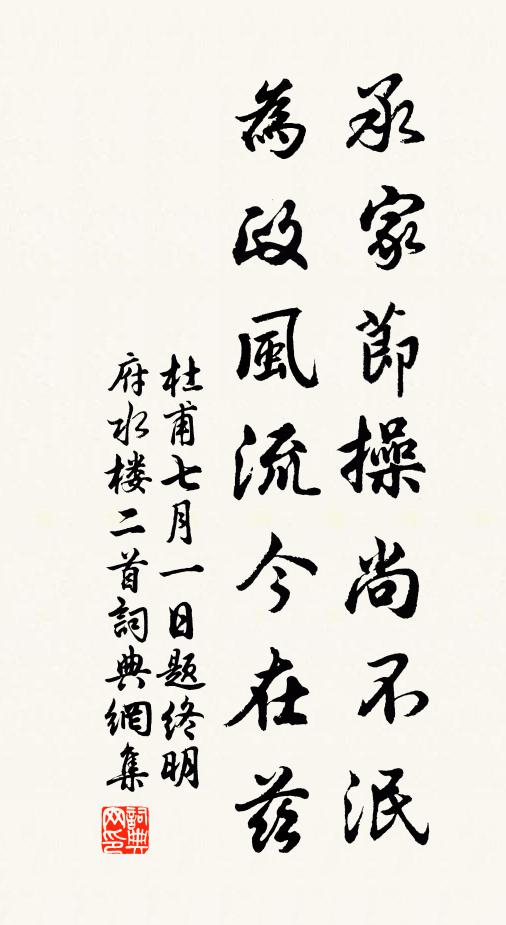 承家節操尚不泯
為政風流今在茲
杜甫七月一日题终明
府水楼二首詞典網集
詞典網印